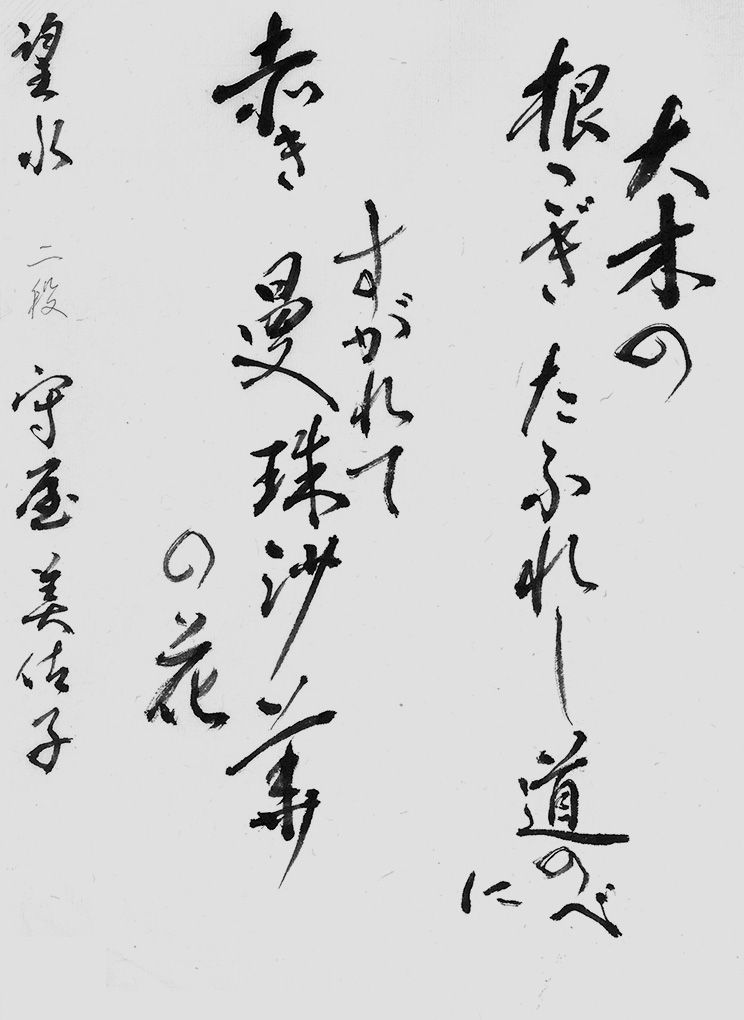 大木の
根こぎたふれし道のべ
に
すがれて
赤き曼珠沙華
の花
望水 二段 守屋美佑子